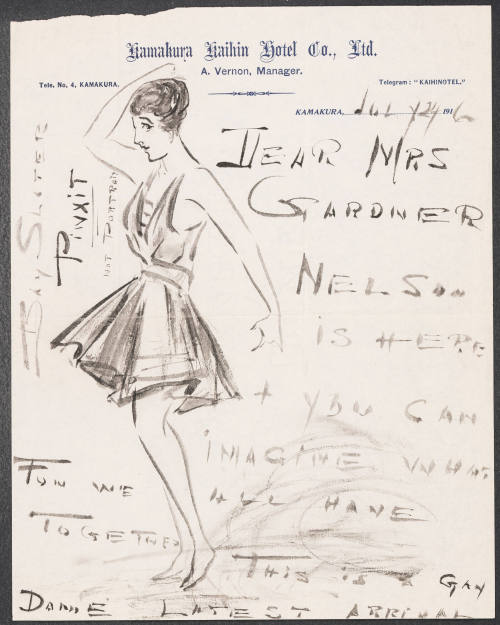 Kamakura Kaihin Hotel Co., Ltd.
A. Vernon, Manager.
Tele. No, 4, KAMAKURA.
Telegram: "KAIHINOTEL."
KAMAKURA, JULY 24 1916
DEAR MRS
GARDNER
NELSON
IS HERE
+ YOU CAN
IMAGINE WHAT
FUN WE ALL HAVE
TOGETHER
THIS IS A GAY
DAME LATEST ARRIVAL
BAY SLATER
PINXIT
NOT PORTRAIT